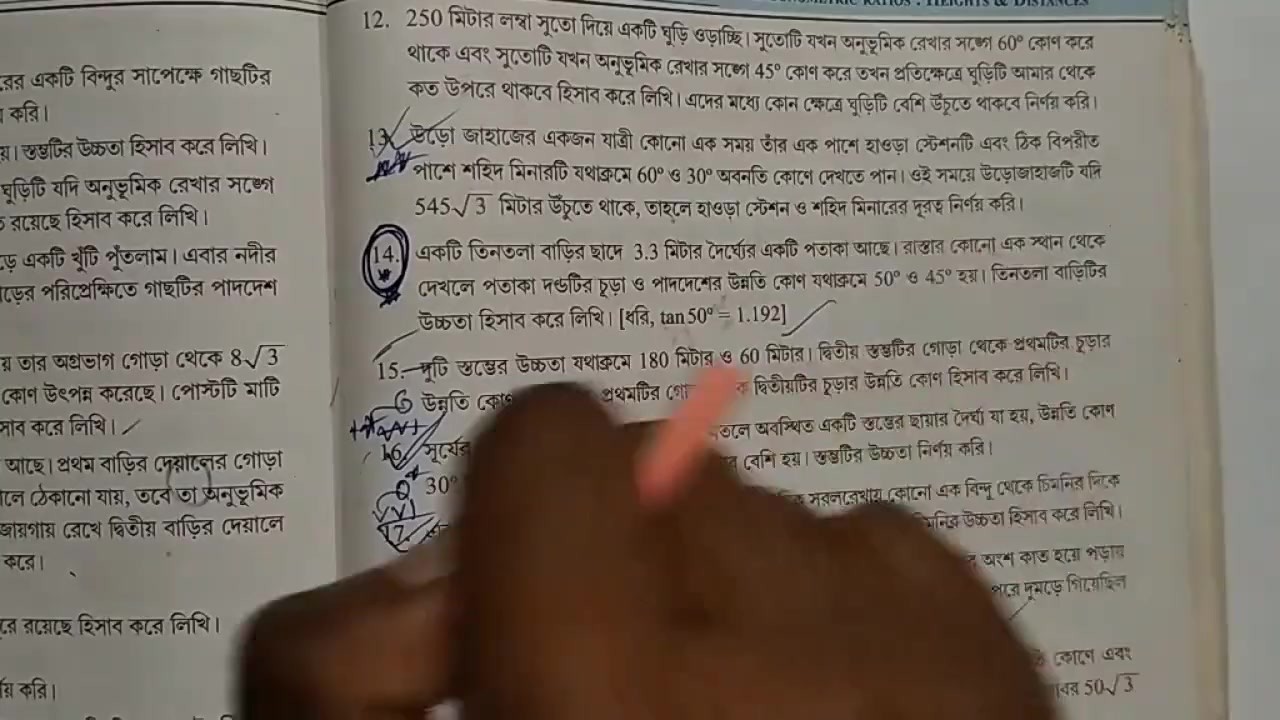 রের একটি বিন্দুর সাপেক্ষে গাছটির
করি।
য়। স্তম্ভটির উচ্চতা হিসাব করে লিখি।
ঘুড়িটি যদি অনুভূমিক রেখার সঙ্গে
রয়েছে হিসাব করে লিখি।
ড়ে একটি খুঁটি পুঁতলাম। এবার নদীর
ড়ের পরিপ্রেক্ষিতে গাছটির পাদদেশ
য় তার অগ্রভাগ গোড়া থেকে 8√3
কোণ উৎপন্ন করেছে। পোস্টটি মাটি
সাব করে লিখি।
আছে। প্রথম বাড়ির দেয়ালের গোড়া
নে ঠেকানো যায়, তবে তা অনুভূমিক
জায়গায় রেখে দ্বিতীয় বাড়ির দেয়ালে
করে।
রে রয়েছে হিসাব করে লিখি।
করি।
RATIOS : HEIGHTS & DISTANCES
12. 250 মিটার লম্বা সুতো দিয়ে একটি ঘুড়ি ওড়াচ্ছি। সুতোটি যখন অনুভূমিক রেখার সঙ্গে 60° কোণ করে
থাকে এবং সুতোটি যখন অনুভূমিক রেখার সঙ্গে 45° কোণ করে তখন প্রতিক্ষেত্রে ঘুড়িটি আমার থেকে
কত উপরে থাকবে হিসাব করে লিখি। এদের মধ্যে কোন ক্ষেত্রে ঘুড়িটি বেশি উঁচুতে থাকবে নির্ণয় করি।
13. উড়ো জাহাজের একজন যাত্রী কোনো এক সময় তাঁর এক পাশে হাওড়া স্টেশনটি এবং ঠিক বিপরীত
পাশে শহিদ মিনারটি যথাক্রমে 60° ও 30° অবনতি কোণে দেখতে পান। ওই সময়ে উড়োজাহাজটি যদি
545√3 মিটার উঁচুতে থাকে, তাহলে হাওড়া স্টেশন ও শহিদ মিনারের দূরত্ব নির্ণয় করি।
14. একটি তিনতলা বাড়ির ছাদে 3.3 মিটার দৈর্ঘ্যের একটি পতাকা আছে। রাস্তার কোনো এক স্থান থেকে
দেখলে পতাকা দণ্ডটির চূড়া ও পাদদেশের উন্নতি কোণ যথাক্রমে 50° ও 45° হয়। তিনতলা বাড়িটির
উচ্চতা হিসাব করে লিখি। [ধরি, tan 50° = 1.192]
15. দুটি স্তম্ভের উচ্চতা যথাক্রমে 180 মিটার ও 60 মিটার। দ্বিতীয় স্তম্ভটির গোড়া থেকে প্রথমটির চূড়ার
উন্নতি কোণ প্রথমটির গো ক দ্বিতীয়টির চূড়ার উন্নতি কোণ হিসাব করে লিখি।
16. সূর্যের তলে অবস্থিত একটি স্তম্ভের ছায়ার দৈর্ঘ্য যা হয়, উন্নতি কোণ
30° বেশি হয়। স্তম্ভটির উচ্চতা নির্ণয় করি।
17. সরলরেখায় কোনো এক বিন্দু থেকে চিমনির দিকে
মনির উচ্চতা হিসাব করে লিখি।
অংশ কাত হয়ে পড়ায়
পরে দুমড়ে গিয়েছিল
কোণে এবং
50√3